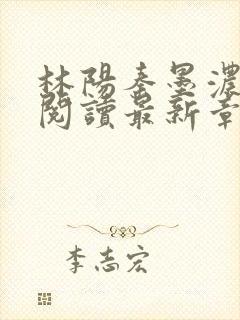 林陽秦墨濃
閱讀最新章
李志宏